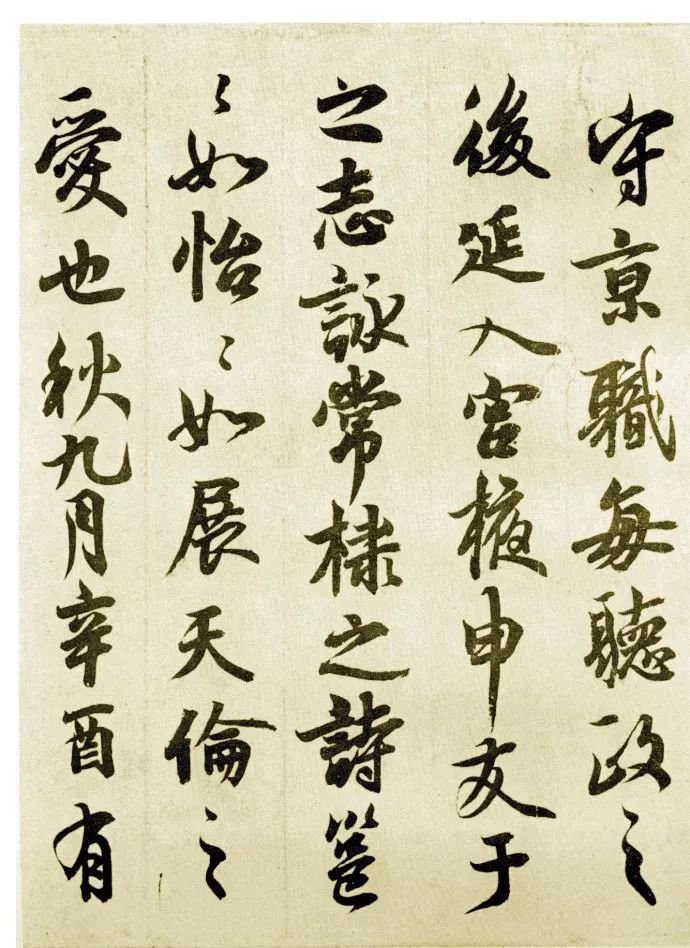 守京職每聽政之
後延入宫掖申友于
之志詠常棣之詩邕
〻如怡〻如展天倫之
愛也秋九月辛酉有